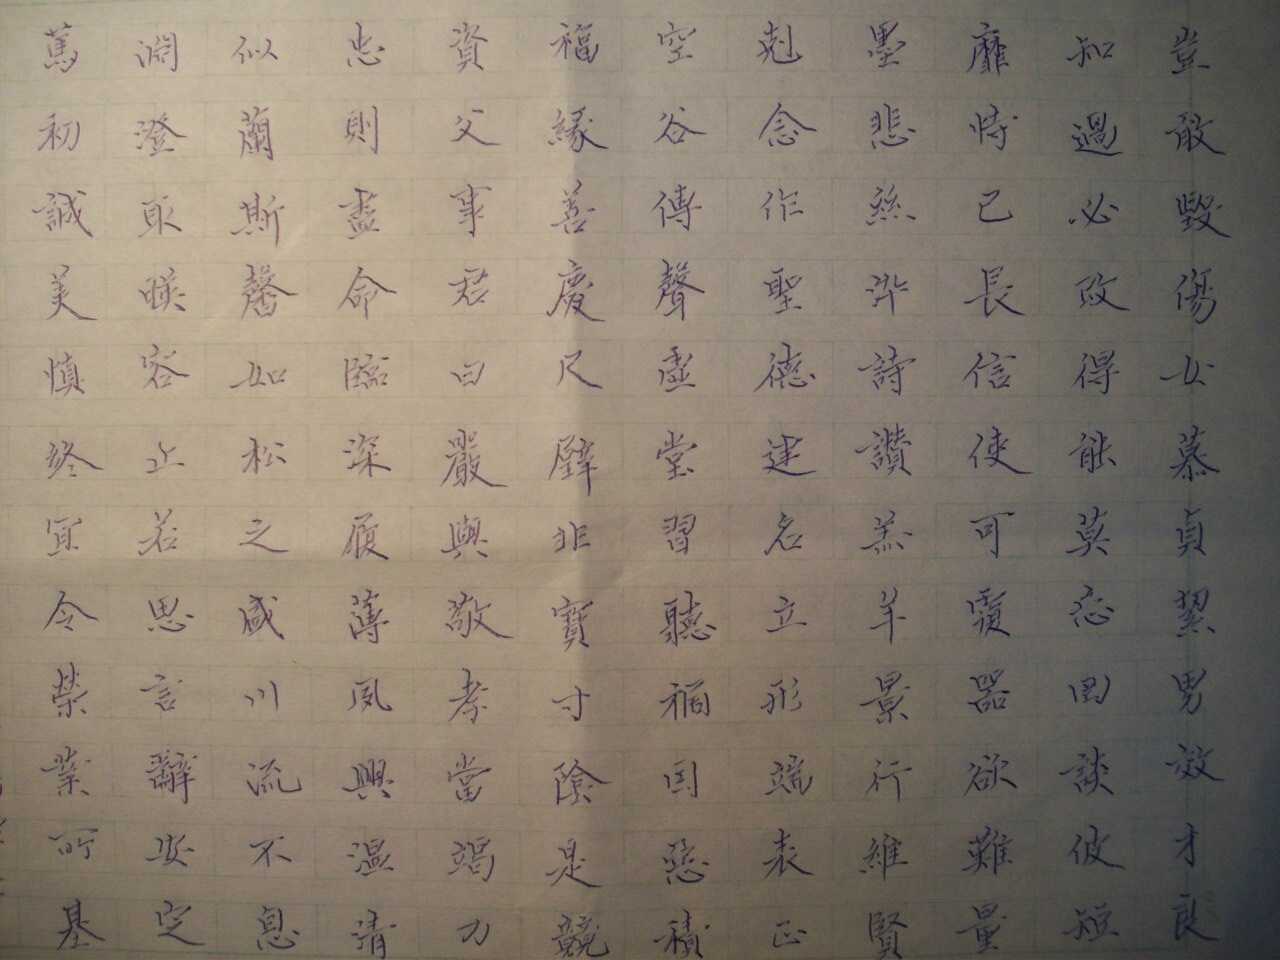 豈敢毀傷女慕貞絜男效才良
知過必改得能莫忘罔談彼短
靡恃己長信使可覆器欲難量
墨悲絲染詩讚羔羊景行維賢
剋念作聖德建名立形端表正
空谷傳聲虛堂習聽禍因惡積
福緣善慶尺璧非寶寸陰是競
資父事君曰嚴與敬孝當竭力
忠則盡命臨深履薄夙興溫清
似蘭斯馨如松之盛川流不息
淵澄取暎容止若思言辭安定
篤初誠美慎終宜令榮業所基